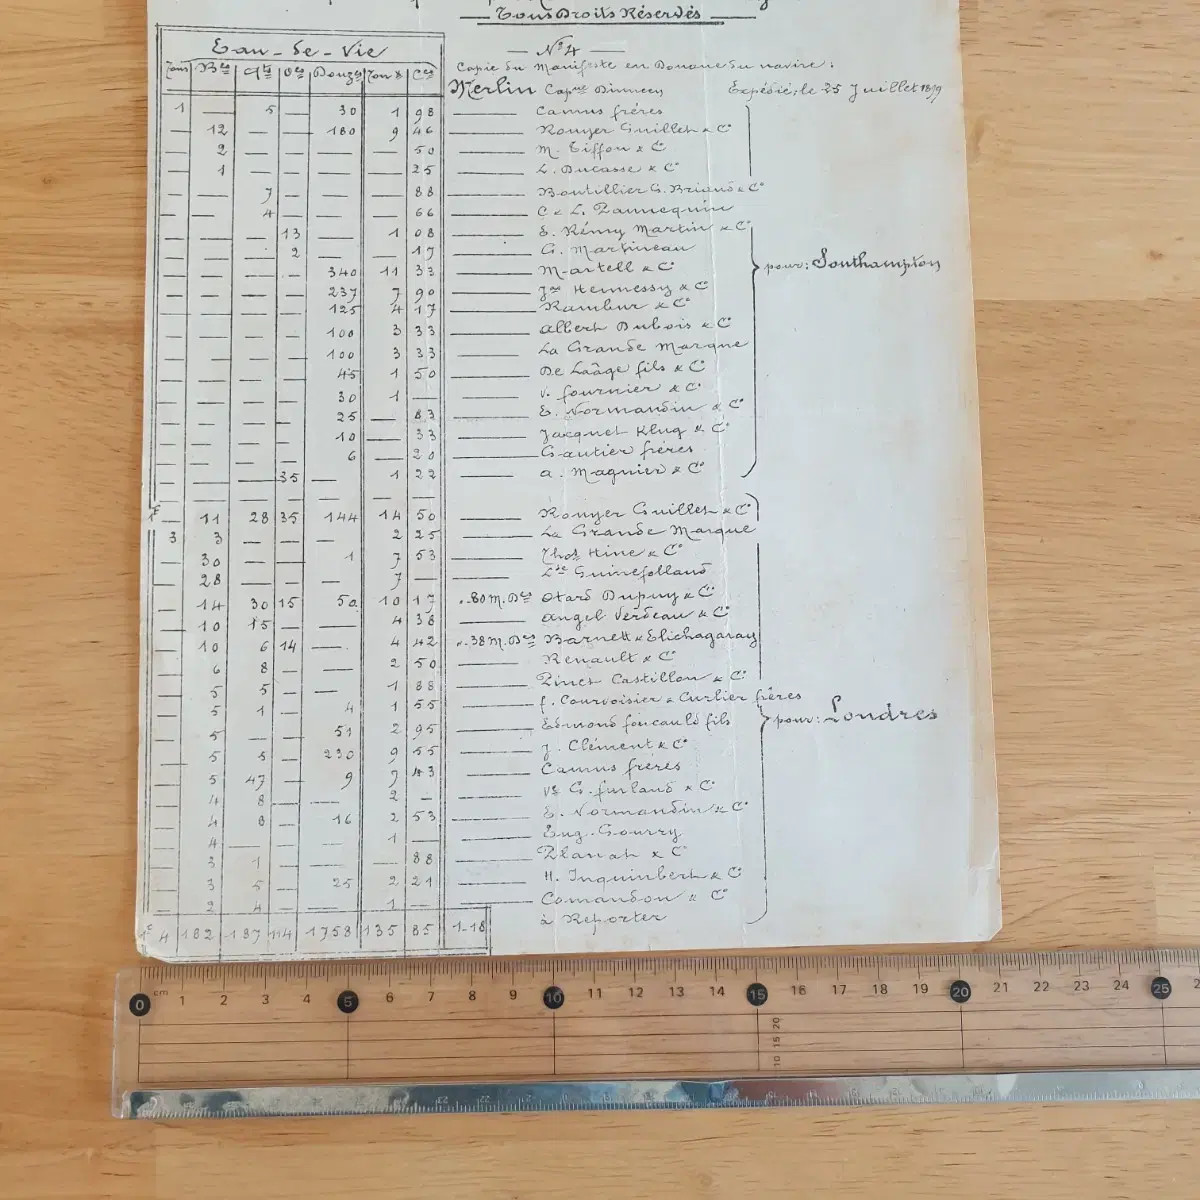 Tous Droits Réservés
Eau-de-Vie
Nº 4
Copie du Manifeste en Douane du navire:
Merlin Capne Expédié, le 25 Juillet
1 — 5 — 30 1 98 Camus frères
— 12 — — 180 9 46 Rouyer Guillet & Cº
— 2 — — — — 50 M. Tiffon & Cº
— 1 — — — — 25 L. Ducasse & Cº
— — 7 — — — 88 Boutillier G. Briand & Cº
— — 4 — — — 66 C & L. Pannequin
— — — 13 — 1 08 E. Rémy Martin & Cº
— — — 2 — — 17 G. Martineau
— — — — 340 11 33 Martell & Cº
pour: Southampton
— — — — 237 7 90 Jas Hennessy & Cº
— — — — 125 4 17 Rambur & Cº
— — — — 100 3 33 Albert Dubois & Cº
— — — — 100 3 33 La Grande Marque
— — — — 45 1 50 De Laâge fils & Cº
— — — — 30 1 — V. Fournier & Cº
— — — — 25 — 83 E. Normandin & Cº
— — — — 10 — 33 Jacquet Klug & Cº
— — — — 6 — 20 Gautier frères
— — — 35 — 1 22 A. Magnier & Cº
— 11 28 35 144 14 50 Rouyer Guillet & Cº
3 3 — — — 2 25 La Grande Marque
30 — — 1 7 53 Thos Hine & Cº
28 — — — 7 —
14 30 15 50 10 17 ..80 M. Des Otard Dupuy & Cº
10 15 — — 4 38 Angel Verdeau & Cº
10 6 14 — 4 42 ..38 M. Des Barnett & Elichagaray
6 8 — — 2 50 Renault & Cº
5 5 — — 1 88 Pinet Castillon & Cº
5 1 — 4 1 55 F. Courvoisier & Curlier frères
5 — — 51 2 95 Edmond Foucauld fils
pour: Londres
5 5 — 230 9 55 J. Clément & Cº
5 47 — 9 7 43 Camus frères
4 8 — — 2 — Ve G. Furlaud & Cº
4 8 — 16 2 53 E. Normandin & Cº
4 — — — 1 — Eug. Gourry
3 1 — — — 88 Planat & Cº
3 5 — 25 2 21 H. Inquimbert & Cº
2 4 — — 1 — Comandon & Cº
à Reporter
4 182 187 114 1758 135 85 1-18
0 cm 1 2 3 4 5 6 7 8 9 10 11 12 13 14 15 16 17 18 19 20 21 22 23 24 25
10 15 20